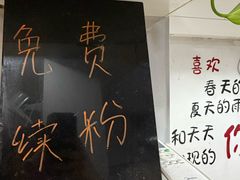 免费
续粉
喜欢
春天的
夏天的雨
和天天
现的
你